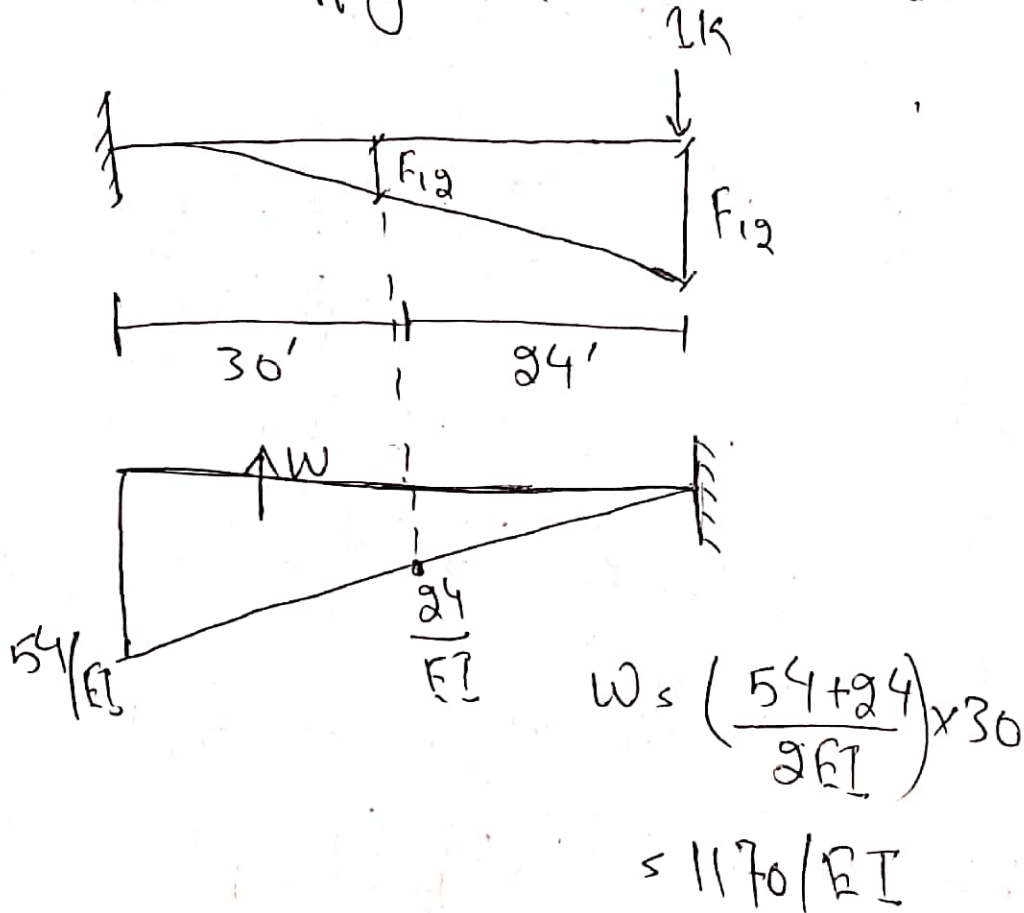 1k
F12
F12
30'
24'
W
24
EI
54/EI
W = (54+24
2EI) x 30
= 1170/EI